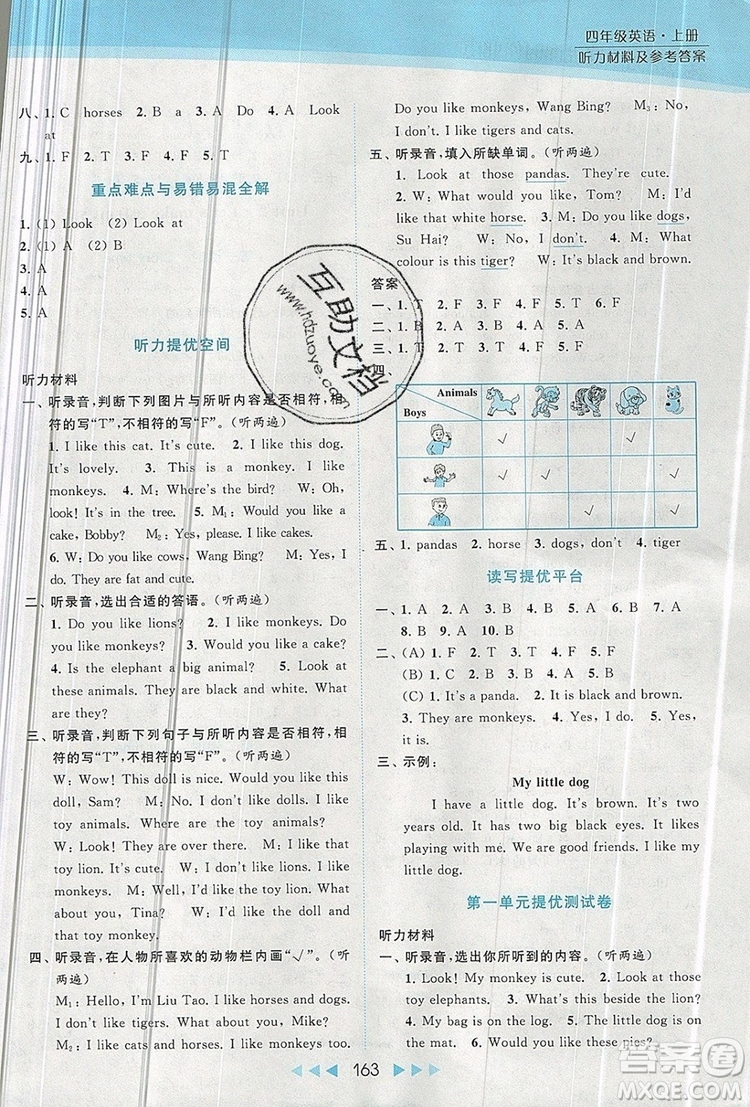 四年级英语·上册
听力材料及参考答案
八、1. C horses 2. B a 3. A Do 4. A Look
at
九、1. F 2. T 3. F 4. T 5. F
重点难点与易错易混全解
1. (1) Look (2) Look at
2. (1) A (2) B
3. A
4. A
5. A
听力提优空间
听力材料
一、听录音,判断下列图片与所听内容是否相符,相
符的写“T”,不相符的写“F”。(听两遍)
1. I like this cat. It's cute. 2. I like this dog.
It's lovely. 3. This is a monkey. I like
monkeys. 4. M: Where's the bird? W: Oh,
look! It's in the tree. 5. M₁: Would you like a
cake, Bobby? M₂: Yes, please. I like cakes.
6. W: Do you like cows, Wang Bing? M: Yes, I
do. They are fat and cute.
二、听录音,选出合适的答语。(听两遍)
1. Do you like lions? 2. Look! Do you like
monkeys? 3. Would you like a cake?
4. Is the elephant a big animal? 5. Look at
these animals. They are cute. 6. Look!
What are they?
三、听录音,判断下列句子与所听内容是否相符,相
符的写“T”,不相符的写“F”。(听两遍)
W: Wow! This doll is nice. Would you like this
doll, Sam? M: No, I don't like dolls. I like
toy animals. Where are the toy animals?
W: Look! They are over there. Would you like
that toy lion? It's cute. M: No, I don't like
toy lions. W: What would you like?
M: Well, I'd like this toy monkey. What
about you, Tina? W: I'd like a doll and that
toy monkey.
四、听录音,在人物所喜欢的动物栏内画“√”。(听
两遍)
M₁: Hello, I'm Liu Tao. I like horses and dogs.
I don't like cats. What about you, Mike?
M₂: I like cats and monkeys. I like horses too.
Do you like monkeys, Wang Bing? M₃: No, I
don't. I like tigers and cats.
五、听录音,填入所缺单词。(听两遍)
1. Look at those pandas. They're cute.
2. W: What would you like, Tom? M: I'd
like that white horse. 3. M: Do you like dogs,
Su Hai? W: No, I don't. 4. M: What
colour is this tiger? W: It's black and brown.
答案
一、1. T 2. F 3. F 4. T 5. T 6. F
二、1. B 2. A 3. A 4. B 5. B 6. A
三、1. F 2. F 3. F 4. T 5. T
四、
Animals
Boys
√ √
√ √ √
√ √
五、1. pandas 2. horse 3. dogs, don't 4. tiger
读写提优平台
一、1. A 2. A 3. B 4. A 5. B 6. A 7. B
8. B 9. A 10. B
二、(A) 1. F 2. F 3. T
(B) 1. C 2. B 3. A
(C) 1. It's a panda. 2. It is black and brown.
3. They are monkeys. 4. It is brown. 5. Yes,
it is.
三、示例:
My little dog
I have a little dog. It's brown. It's two
years old. It has two big black eyes. It likes
playing with me. We are good friends. I like my
little dog.
第一单元提优测试卷
听力材料
一、听录音,选出你所听到的内容。(听两遍)
1. Look! My monkey is cute. 2. Look at those
toy elephants. 3. What's this beside the lion?
4. My bag is on the log. 5. The toy lion is on
the mat. 6. Would you like these pies?
163
互助文档
www.hdzuoye.com
答案圈
MXQE.COM